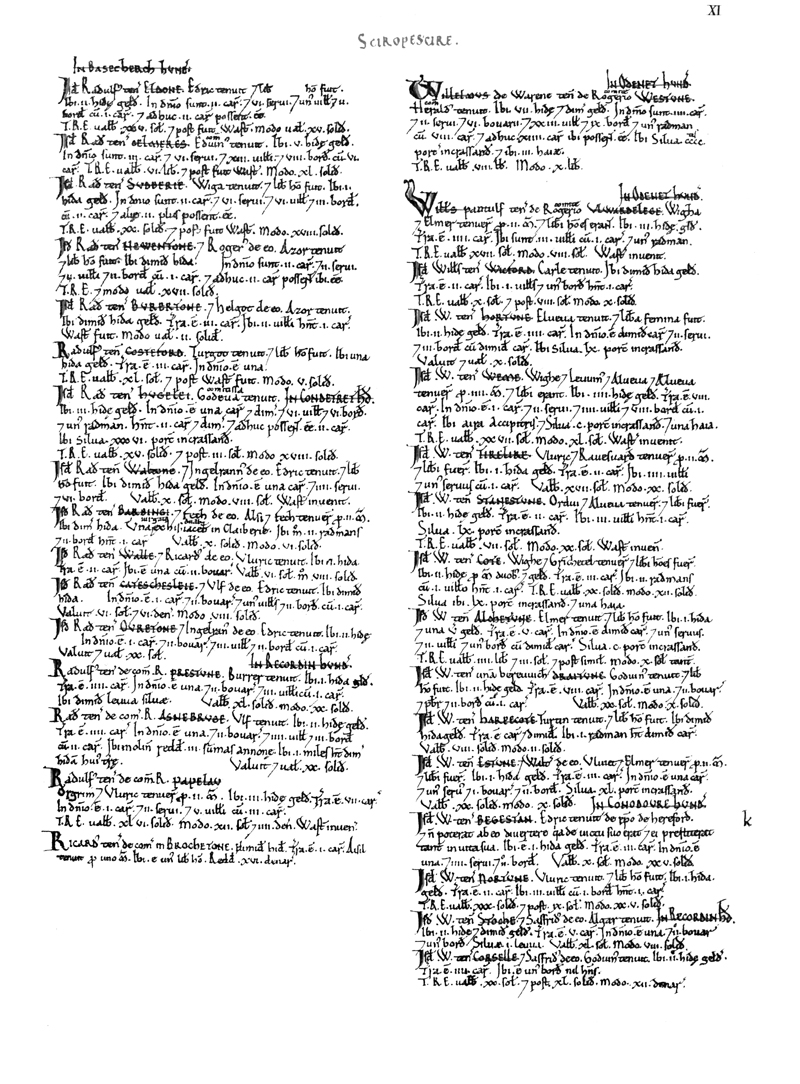 XI
SCIROPESCIRE.
In Basecherch hund.
Isd Radulf ten ELDONE. Edric tenuit 7 lib hō fuit.
Ibi.ii. hidę geld. In dnīo sunt.ii. car̄.7 vi. serui.7 un uill̄ 7 v.
bord cū.i. car̄. 7 adhuc.ii. car̄ possent.ēē.
T.R.E. ualb xxv. sol. 7 post fuit Wast. Modo ual xv. solid.
Isd Rad ten Eduin tenuit. Ibi.v. hidę geld.
In dnīo sunt.iii. car̄. 7 vi. serui. 7 xiii. uilli 7 viii. bord cū vi.
car̄. T.R.E. ualb.vi. lib. 7 post fuit Wast. Modo. xl. solid.
Isd Rad ten Wiga tenuit. 7 lib hō fuit. Ibi.i.
hida geld. In dnīo sunt.ii. car̄. 7 vi. serui. 7 vi. uilli 7 iii. bord
cū.ii. car̄. 7 alię.ii. plus possent.ēē.
T.R.E. ualb. xx. solid. 7 post fuit Wast. Modo. xviii. solid.
Isd Rad ten 7 Roger de eo. Azor tenuit
7 lib hō fuit. Ibi dimid hida. In dnīo sunt.ii. car̄. 7 ii. serui.
7 v. uilli 7 ii. bord cū.i. car̄. 7 adhuc.ii. car̄ possent ibi.ēē.
T.R.E. 7 modo ual. xvii. solid.
Isd Rad ten BURBRTONE. 7 helgot de eo. Azor tenuit.
Ibi dimid hida geld. Tra.ē.iii. car̄. Ibi.ii. uilli hn̄t.i. car̄.
Wast fuit. Modo ual.ii. solid.
Radulf ten COSTEFORD. Turgot tenuit 7 lib hō fuit. Ibi una
hida geld. Tra.ē.iii. car̄. In dnīo.ē una.
T.R.E. ualb. xl. sol. 7 post Wast fuit. Modo. v. solid.
Isd Rad ten HUGELEI. Godeua comitissa tenuit. In CONDETRET hd.
Ibi.iii. hidę geld. In dnīo.ē una car̄ 7 dim. 7 vi. uilli 7 vi. bord.
7 un radman. Hn̄t.ii. car̄ 7 dim. 7 adhuc possent.ēē.ii. car̄.
Ibi Silua. xxx vi. porc incrassand.
T.R.E. ualb. xv. solid. 7 post.iii. sol. Modo xviii. solid.
Isd Rad ten 7 Ingelrann de eo. Edric tenuit. 7 lib
hō fuit. Ibi dimid hida geld. In dnīo.ē una car̄. 7 iiii. serui.
7 vi. bord. Valb. x. sol. Modo. viii. sol. Wast inuenit.
Isd Rad ten BARDINGI. 7 fech de eo. Alsi 7 fech tenuer p.ii. m̄.
Ibi dimid hida. Una uirgata ex his iacet in Claiberie. Ibi m̄.ii. radmans
7 ii. bord hn̄t.i. car̄ Valb. x. solid. Modo. vi. solid.
Isd Rad ten WALLE. 7 Ricard de eo. Vluric tenuit. Ibi.ii. hida.
Tra.ē.ii. car̄. Ibi.ē una cū.ii. bouar. Valb. vi. sol. m̄ viii. solid.
Isd Rad ten CATESCHESLEIE. 7 Vlf de eo. Edric tenuit. Ibi dimid
hida. In dnīo.ē.i. car̄. 7 ii. bouar. 7 un uills 7 ii. bord. cū.i. car̄.
Valuit. vi. sol. 7 vi. den. Modo viii. solid.
Isd Rad ten OVRETONE. 7 Ingelrann de eo. Edric tenuit. Ibi.ii. hidę.
In dnīo.ē.i. car̄. 7 ii. bouar. 7 iii. uilli 7 ii. bord. cū.i. car̄.
Valuit 7 ual. xx. sol. In RECORDIN hund.
Radulf ten de com̄. R. PRESTUNE. Burrer tenuit. Ibi.i. hida geld.
Tra.ē.iiii. car̄. In dnīo.ē una. 7 ii. bouar. 7 iiii. uilli cū.i. car̄.
Ibi dimid leuua siluæ. Valb. xl. solid. modo. xx. sol.
Rad ten de com̄. R. ASNEBRUGE. Vlf tenuit. Ibi.ii. hidę geld.
Tra.ē.iiii. car̄. In dnīo.ē. una. 7 ii. bouar. 7 iiii. uilli 7 iii. bord
cū.ii. car̄. Ibi molin redd.iii. sūmas annonę. Ibi.i. miles ht dim
hida Valuit 7 ual. xx. solid.
Radulf ten de com̄ R. PAPELAU
Orgrim 7 Vluric tenuer p.ii. m̄. Ibi.iii. hidę geld. Tra.ē.vii. car̄.
In dnīo.ē.i. car̄. 7 ii. serui. 7 v. uilli cū.iii. car̄.
T.R.E. ualb. xl vi. solid. Modo. xii. sol. 7 iiii. den. Wast inuen.
Ricard ten de com̄ BROCHETONE. dimid hid. Tra.ē.i. car̄.
tenuit p uno m̄. Ibi.ē un lib hō. Redd. xvi. denar.
In ODENET hund.
Willelmus de Warene ten de Rogerio comite WESTUNE.
Herald com tenuit. Ibi. vii. hidę 7 dim geld. In dnīo sunt.iiii. car̄.
7 ii. serui. 7 viii. bouar. 7 xx iii. uilli 7 ix. bord. 7 un radman
cū. viii. car̄. 7 adhuc xiiii. car̄ ibi possent.ēē. Ibi Silua cccc.
porc incrassand. 7 ibi.iii. haiæ.
T.R.E. ualb. viii. lib. Modo. x. lib.
In ODENET hund.
Wills pantulf ten de Rogerio comite Wigha
7 Elmer tenuer p.ii. m̄. 7 libi hoēs eran. Ibi.iii. hidę geld.
Tra.ē.iiii. car̄. Ibi sunt.iii. uilli cū.i. car̄. 7 un radman.
T.R.E. ualb. xxvi. sol. Modo. viii. sol. Wast inuent.
Isd Wills ten WICFORD. Carle tenuit. Ibi dimid hida geld.
Tra.ē.ii. car̄. Ibi.i. uills 7 un bord hn̄t.i. car̄.
T.R.E. ualb. x. sol. 7 post. viii. sol. Modo x. solid.
Isd W. ten HORTUNE. Elueua tenuit. 7 liba femina fuit.
Ibi.ii. hidę geld. Tra.ē.iiii. car̄. In dnīo.ē dimid car̄. 7 ii. serui.
7 iii. bord cū dimid car̄. Ibi Silua. lx. porc incrassand.
Valuit 7 ual. x. solid.
Isd W. ten WEME. Wighe 7 Leuuin 7 Alueua 7 Alueua
tenuer p.iiii. m̄. 7 libi erant. Ibi.iiii. hidę geld. Tra.ē.viii.
car̄. In dnīo.ē.i. car̄. 7 ii. serui. 7 iiii. uilli 7 viii. bord cū.i.
car̄. Ibi aira Accipitris. 7 Silua. c. porc incrassand. 7 una haia.
T.R.E. ualb. xx vii. sol. Modo. xl. sol. Wast inuenit.
Isd W. ten TIRELIRE. Vluric 7 Rauesuard tenuer p.ii. m̄.
7 libi fuer. Ibi.i. hida geld. Tra.ē.iii. car̄. Ibi.iiii. uilli
7 un seruus cū.i. car̄. Valb. xx vii. sol. Modo. x. solid.
Isd W. ten STANESTUNE. Ordui 7 Alueua tenuer. 7 libi fuer.
Ibi.ii. hidę geld. Tra.ē.iii. car̄. Ibi.iii. uilli hn̄t.i. car̄.
Silua. lx. porc incrassand.
T.R.E. ualb. vii. sol. Modo. xx. sol. Wast inuen.
Isd W. ten COTE. Wighe 7 Grichetel tenuer 7 libi hoēs fuer.
Ibi.ii. hidę p m̄ duob 7 geld. Tra.ē.iii. car̄. Ibi.ii. radmans
cū.ii. uillo hn̄t.i. car̄. Valuit. viii. sol. Modo. x. solid.
Silua ibi. lx. porc incrassand. 7 una haia.
Isd W. ten ALCHETUNE. Elmer tenuit. 7 lib hō fuit. Ibi.i. hida
7 una v geld. Tra.ē.v. car̄. In dnīo.ē dimid car̄. 7 un seruus.
7 ii. uilli 7 un bord cū dimid car̄. Silua.c. porc incrassand.
T.R.E. ualb. iiii. lib 7 x. sol. 7 post simil. Modo. xl. sol tant.
Isd W. ten una bereuuich DRAITUNE. Godwin tenuit. 7 lib
hō fuit. Ibi.ii. hidę geld. Tra.ē.iii. car̄. In dnīo.ē una. 7 ii. bouar.
7 pbr 7 ii. bord cū.i. car̄. Valb. xx. solid. Modo. x. solid.
Isd W. ten HARPECOTE. Turtin tenuit. 7 lib hō fuit. Ibi dimid
hida geld. Tra.ē car̄ 7 dimid. Ibi.i. radman ht dimid car̄.
Valb. viii. solid. modo.ii. solid.
Isd W. ten ESTUNE. 7 Walt de eo. Vluiet 7 Elmer tenuer. p.ii. m̄.
7 libi fuer. Ibi.i. hida geld. Tra.ē.iii. car̄. In dnīo.ē una car̄.
7 un seru 7 ii. bouar. 7 ii. bord. Silua. xl. porc incrassand.
Valb. xx. solid. modo. x. solid. In CONODOVRE hund.
Isd W. ten BEGESTAN. Edric tenuit de epo de hereford. k
7 n̄ poterat ab eo diuertere qa de uictu suo erat 7 ei prestiterat
tant in uita sua. Ibi.ē.i. hida geld. Tra.ē.ii. car̄. In dnīo.ē
una. 7 iiii. serui. 7 ii. bord. Valb. x. sol. Modo. xx v. solid.
Isd W. ten NORTUNE. Vluric tenuit 7 lib hō fuit. Ibi.i. hida.
geld. Tra.ē.ii. car̄. Ibi.iii. uilli cū.i. bord hn̄t.i. car̄.
T.R.E. ualb. xxx. solid. 7 post. ix. sol. Modo. xx v. solid.
Isd W. ten STOCHE. 7 Saffrid de eo. Algar tenuit. In RECORDIN hd.
Ibi.ii. hidę 7 dimid geld. Tra.ē.v. car̄. In dnīo.ē una. 7 ii. bouar
7 un bord. Siluæ.i. leuua. Valb. xl. sol. Modo. viii. solid.
Isd W. ten CORSELLE. 7 Saffrid de eo. Godwin tenuit. Ibi.ii. hidę geld.
Tra.ē.iiii. car̄. Ibi.ē un bord nil hn̄s.
T.R.E. ualb. xx. sol. 7 post. xl. solid. Modo. xii. denar.